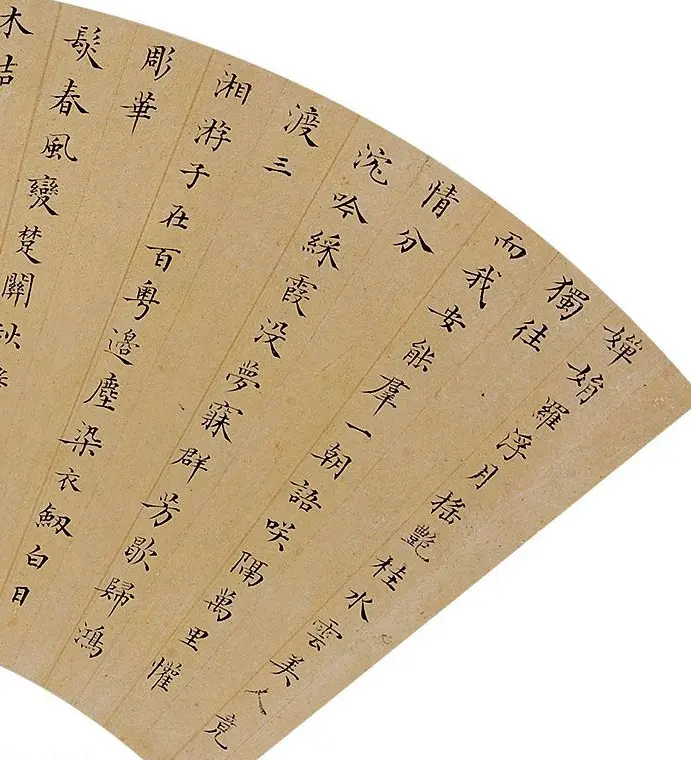 嬋娟羅浮月搖艷桂水雲美人竟
獨往
而我安能羣一朝語咲隔萬里懽
情分
沉吟綵霞没夢寐群芳歇歸鴻
渡三
湘游子在百粵邊塵染衣劒白日
彫華
鬂春風變楚關秋
木